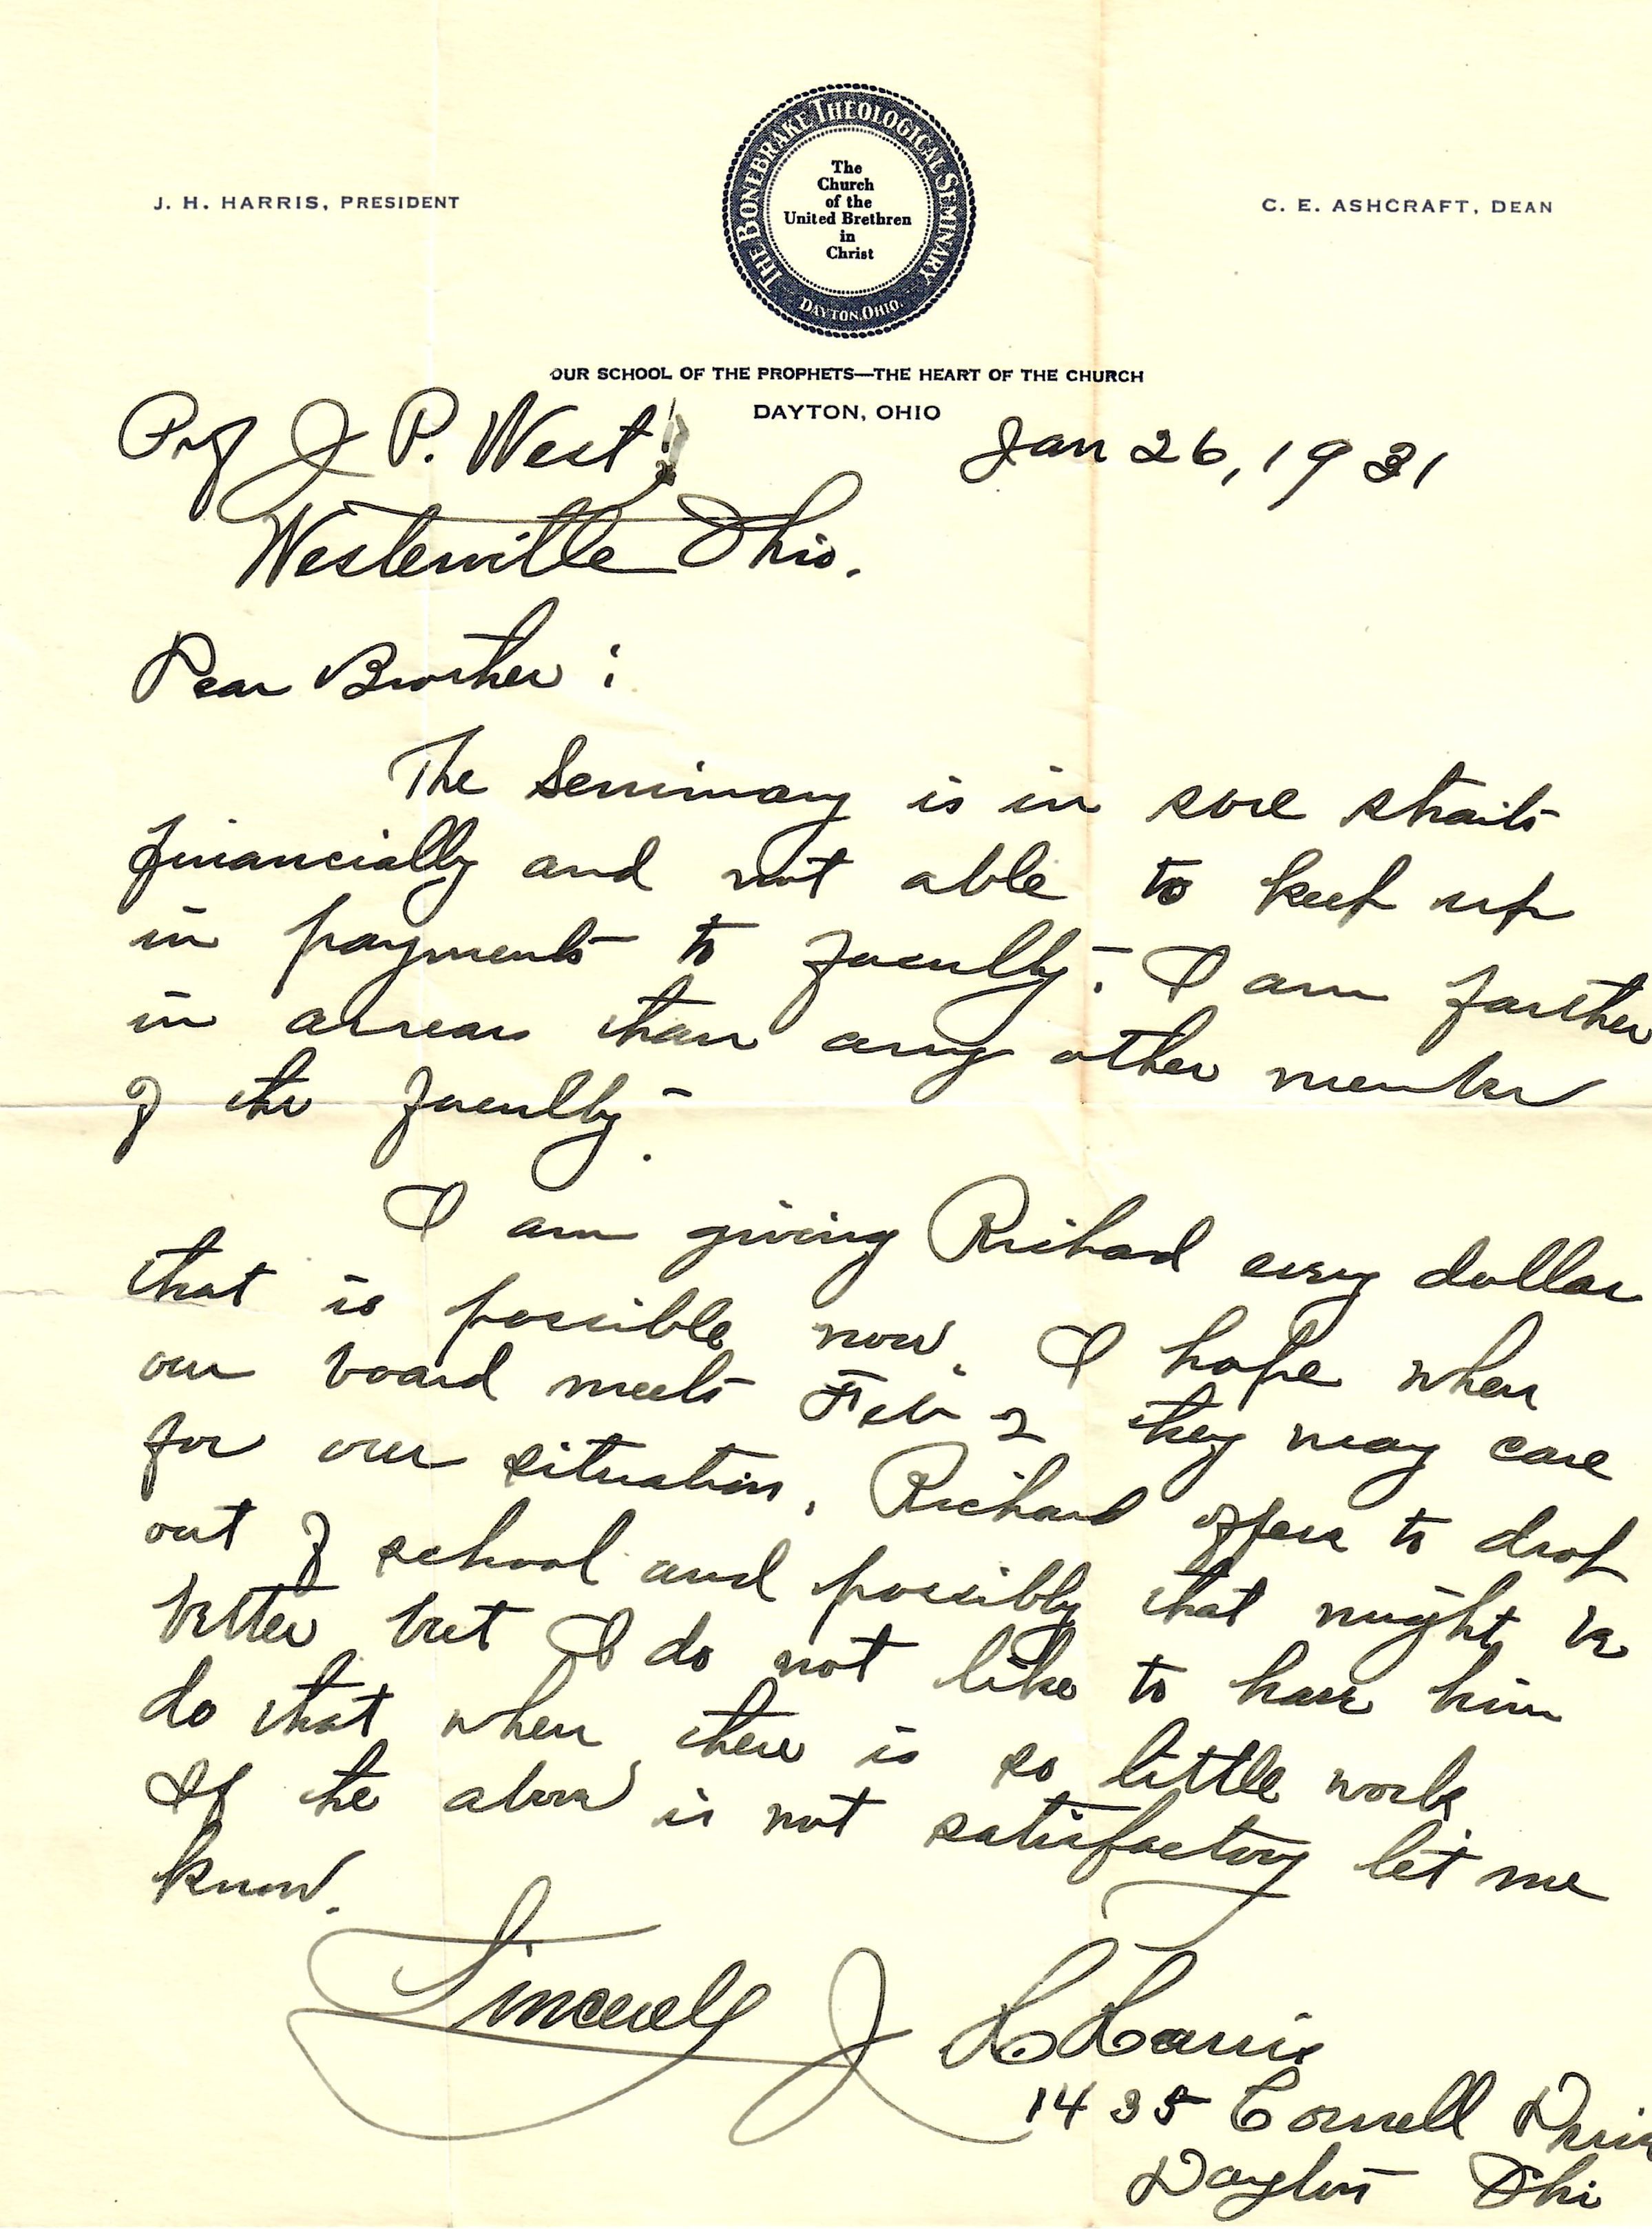 J. H. HARRIS, PRESIDENT
THE BONEBRAKE THEOLOGICAL SEMINARY
DAYTON, OHIO.
The
Church
of the
United Brethren
in
Christ
C. E. ASHCRAFT, DEAN
OUR SCHOOL OF THE PROPHETS—THE HEART OF THE CHURCH
DAYTON, OHIO
Prof J P. West
Jan 26, 1931
Westerville Ohio.
Dear Brother:
The Seminary is in sore straits
financially and not able to keep up
in payments to faculty. I am farther
in arrears than any other member
of the faculty.
I am giving Richard every dollar
that is possible now. I hope when
our board meets Feb 2 they may care
for our situation. Richard offers to drop
out of school and possibly that might be
better but I do not like to have him
do that when there is so little work
If the above is not satisfactory let me
know.
Sincerely J H Harris
1435 Cornell Driv
Dayton Ohi